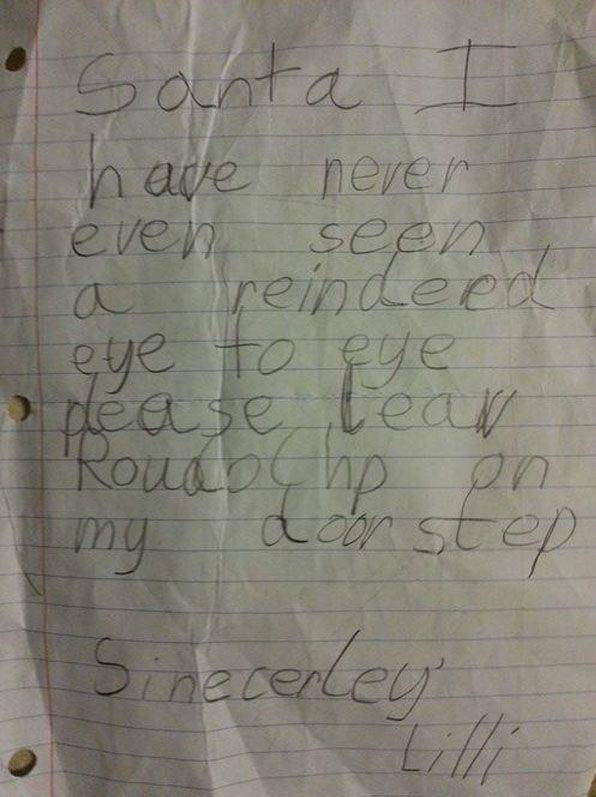 Santa I
have never
even seen
a reindeed
eye to eye
pease leav
Roudolhp on
my doorstep
Sinecerley
Lilli